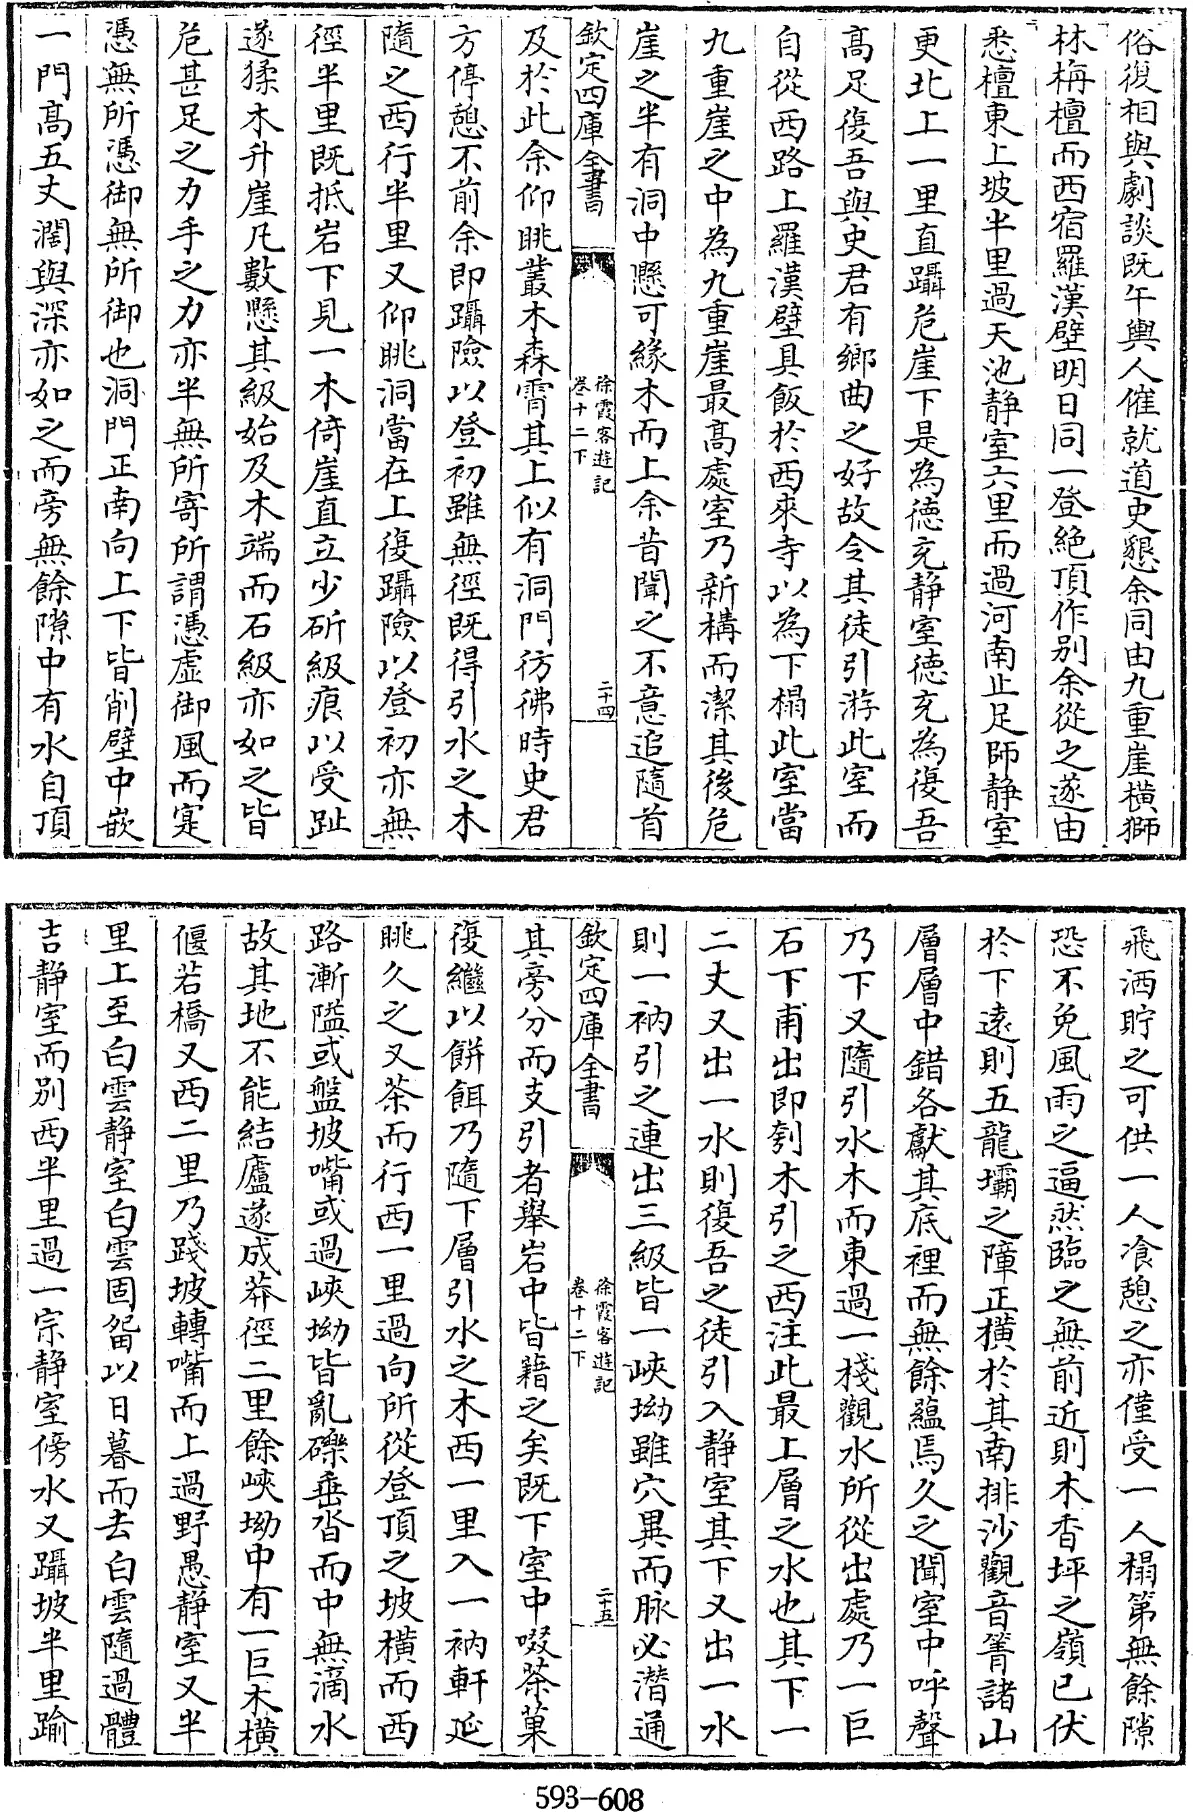 俗復相與劇談既午輿人催就道史懇余同由九重崖橫獅
林栴檀而西宿羅漢壁明日同一登絶頂作别余從之遂由
悉檀東上坡半里過天池静室六里而過河南止足師静室
更北上一里直躡危崖下是為德充静室德充為復吾
高足復吾與史君有鄉曲之好故令其徒引游此室而
自從西路上羅漢壁具飯於西來寺以為下榻此室當
九重崖之中為九重崖最高處室乃新構而潔其後危
崖之半有洞中懸可緣木而上余昔聞之不意追隨首
欽定四庫全書
徐霞客遊記
卷十二下
二十四
及於此余仰眺叢木森霄其上似有洞門彷彿時史君
方停憩不前余即躡險以登初雖無徑既得引水之木
隨之西行半里又仰眺洞當在上復躡險以登初亦無
徑半里既抵岩下見一木倚崖直立少斫級痕以受趾
遂猱木升崖凡數懸其級始及木端而石級亦如之皆
危甚足之力手之力亦半無所寄所謂憑虚御風而寔
憑無所憑御無所御也洞門正南向上下皆削壁中嵌
一門高五丈濶與深亦如之而旁無餘隙中有水自頂
飛洒貯之可供一人飡憩之亦僅受一人榻第無餘隙
恐不免風雨之逼然臨之無前近則木香坪之嶺已伏
於下遠則五龍壩之障正橫於其南排沙觀音箐諸山
層層中錯各獻其底裡而無餘蘊焉久之聞室中呼聲
乃下又隨引水木而東過一棧觀水所從出處乃一巨
石下甫出即刳木引之西注此最上層之水也其下一
二丈又出一水則復吾之徒引入静室其下又出一水
則一衲引之連出三級皆一峽坳雖穴異而脉必潜通
欽定四庫全書
徐霞客遊記
卷十二下
二十五
其旁分而支引者舉岩中皆藉之矣既下室中啜茶菓
復繼以餅餌乃隨下層引水之木西一里入一衲軒延
眺久之又茶而行西一里過向所從登頂之坡橫而西
路漸隘或盤坡嘴或過峽坳皆亂礫垂沓而中無滴水
故其地不能結廬遂成莽徑二里餘峽坳中有一巨木橫
偃若橋又西二里乃踐坡轉嘴而上過野愚静室又半
里上至白雲静室白雲固留以日暮而去白雲隨過體
吉静室而别西半里過一宗静室傍水又躡坡半里踰
593-608